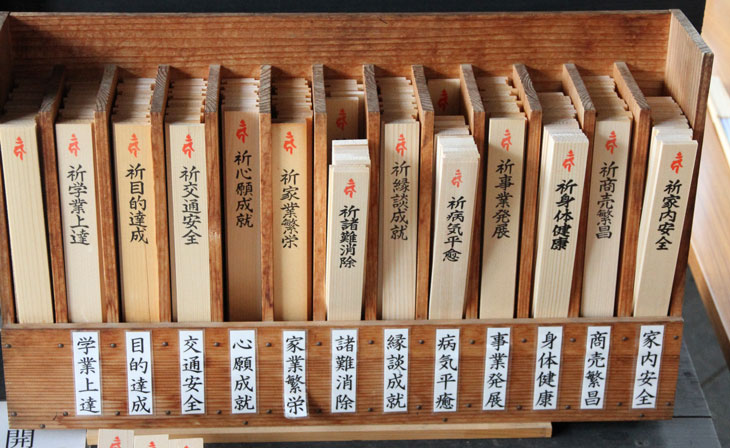 祈家内安全
祈商売繁昌
祈身体健康
祈事業発展
祈病気平愈
祈縁談成就
祈諸難消除
祈家業繁栄
祈心願成就
祈交通安全
祈目的達成
祈学業上達
家内安全
商売繁昌
身体健康
事業発展
病気平癒
縁談成就
諸難消除
家業繁栄
心願成就
交通安全
目的達成
学業上達
開